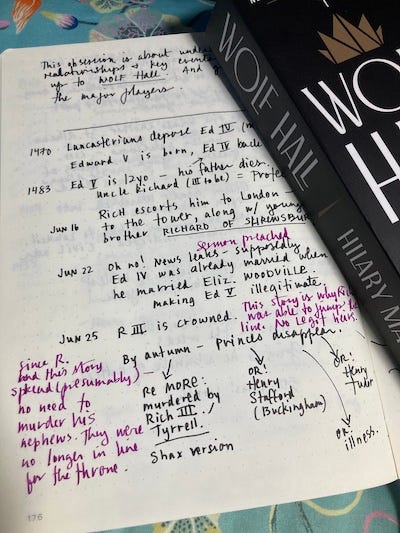 This obsession is about
relationships + key events
up to WOLF HALL. And
the major players.
1470 Lancasterians depose Ed IV
Edward V is born, Ed IV
1483 Ed V is 12yo - his father dies.
Uncle Richard (III to be) =
Rich escorts him to London -
JUN 16 to the tower, along w/ young
brother RICHARD OF SHREWSBURY
Sermon preached
JUN 22 Oh no! News leaks - supposedly
Ed IV was already married when
he married Eliz. WOODVILLE
making Ed V illegitimate.
This story is why
was able to jump the
line. No legit heirs.
JUN 25 R III is crowned.
By autumn - Princes disappear.
Since R.
had this story
spread (presumably) -
no need to
murder his
nephews. They were
no longer in line
for the throne.
Re MORE:
murdered by
Rich III/
Tyrrell.
Shax version
OR!
Henry
Stafford
(Buckingham)
OR!
Henry
Tudor
OR!
illness.
176
WOLF HALL
HILARY
WO
H